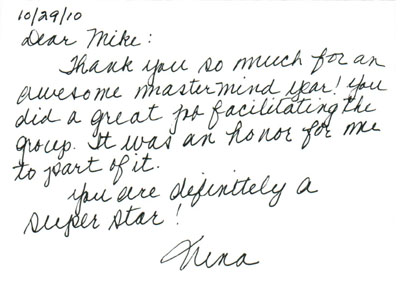 10/29/10
Dear Mike:
Thank you so much for an
awesome mastermind year! You
did a great job facilitating the
group. It was an honor for me
to part of it.
You are definitely a
super star!
Nena